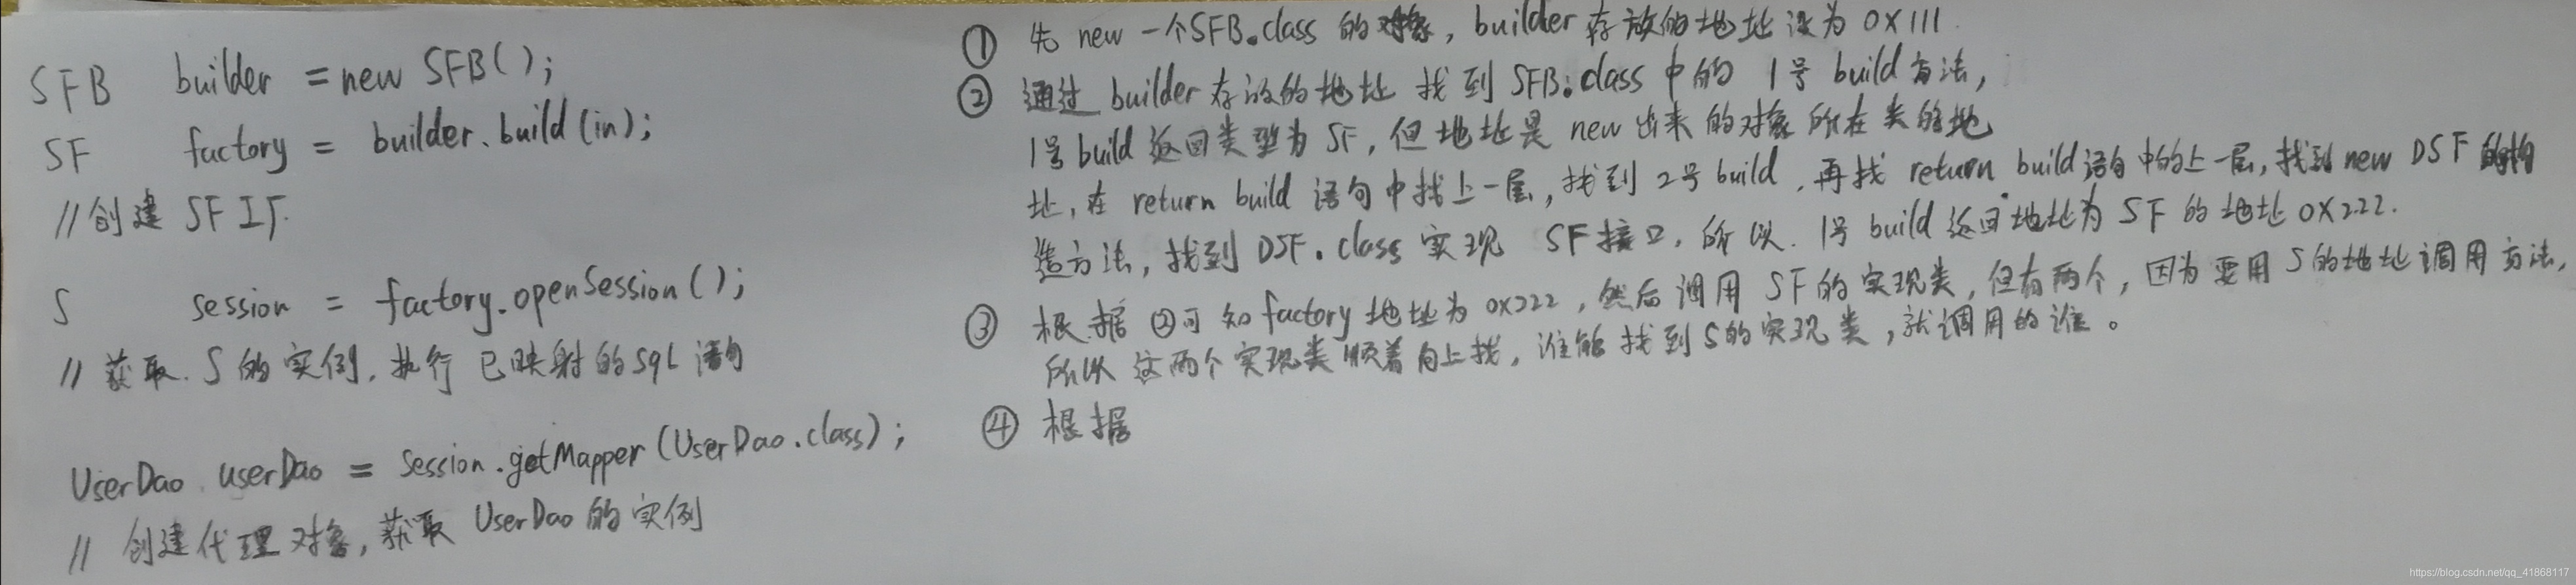 SFB builder = new SFB();
SF factory = builder.build(in);
//创建 SF 工厂.
S session = factory.openSession();
// 获取 S 的实例, 执行 已映射的sql 语句
UserDao userDao = Session.getMapper(UserDao.class);
// 创建代理对象, 获取 UserDao 的实例
① 先 new 一个SFB.class 的对象, builder 存放的地址设为 0X111
② 通过 builder 存放的地址 找到 SFB.class 中的 1号 build 方法,
1号 build 返回类型为 SF, 但地址是 new 出来的对象所在类的地
址, 在 return build 语句中找上一层, 找到 2号 build, 再找 return build语句中的上一层, 找到 new DSF 的构
造方法, 找到 DSF.class 实现 SF接口, 所以. 1号 build 返回地址为 SF 的地址 0X222.
③ 根据②可知 factory 地址为 0x222, 然后调用 SF的实现类, 但有两个, 因为要用 S的地址调用方法,
所以这两个实现类顺着向上找, 谁能找到S的实现类, 就调用的谁。
④ 根据
https://blog.csdn.net/qq_41868117